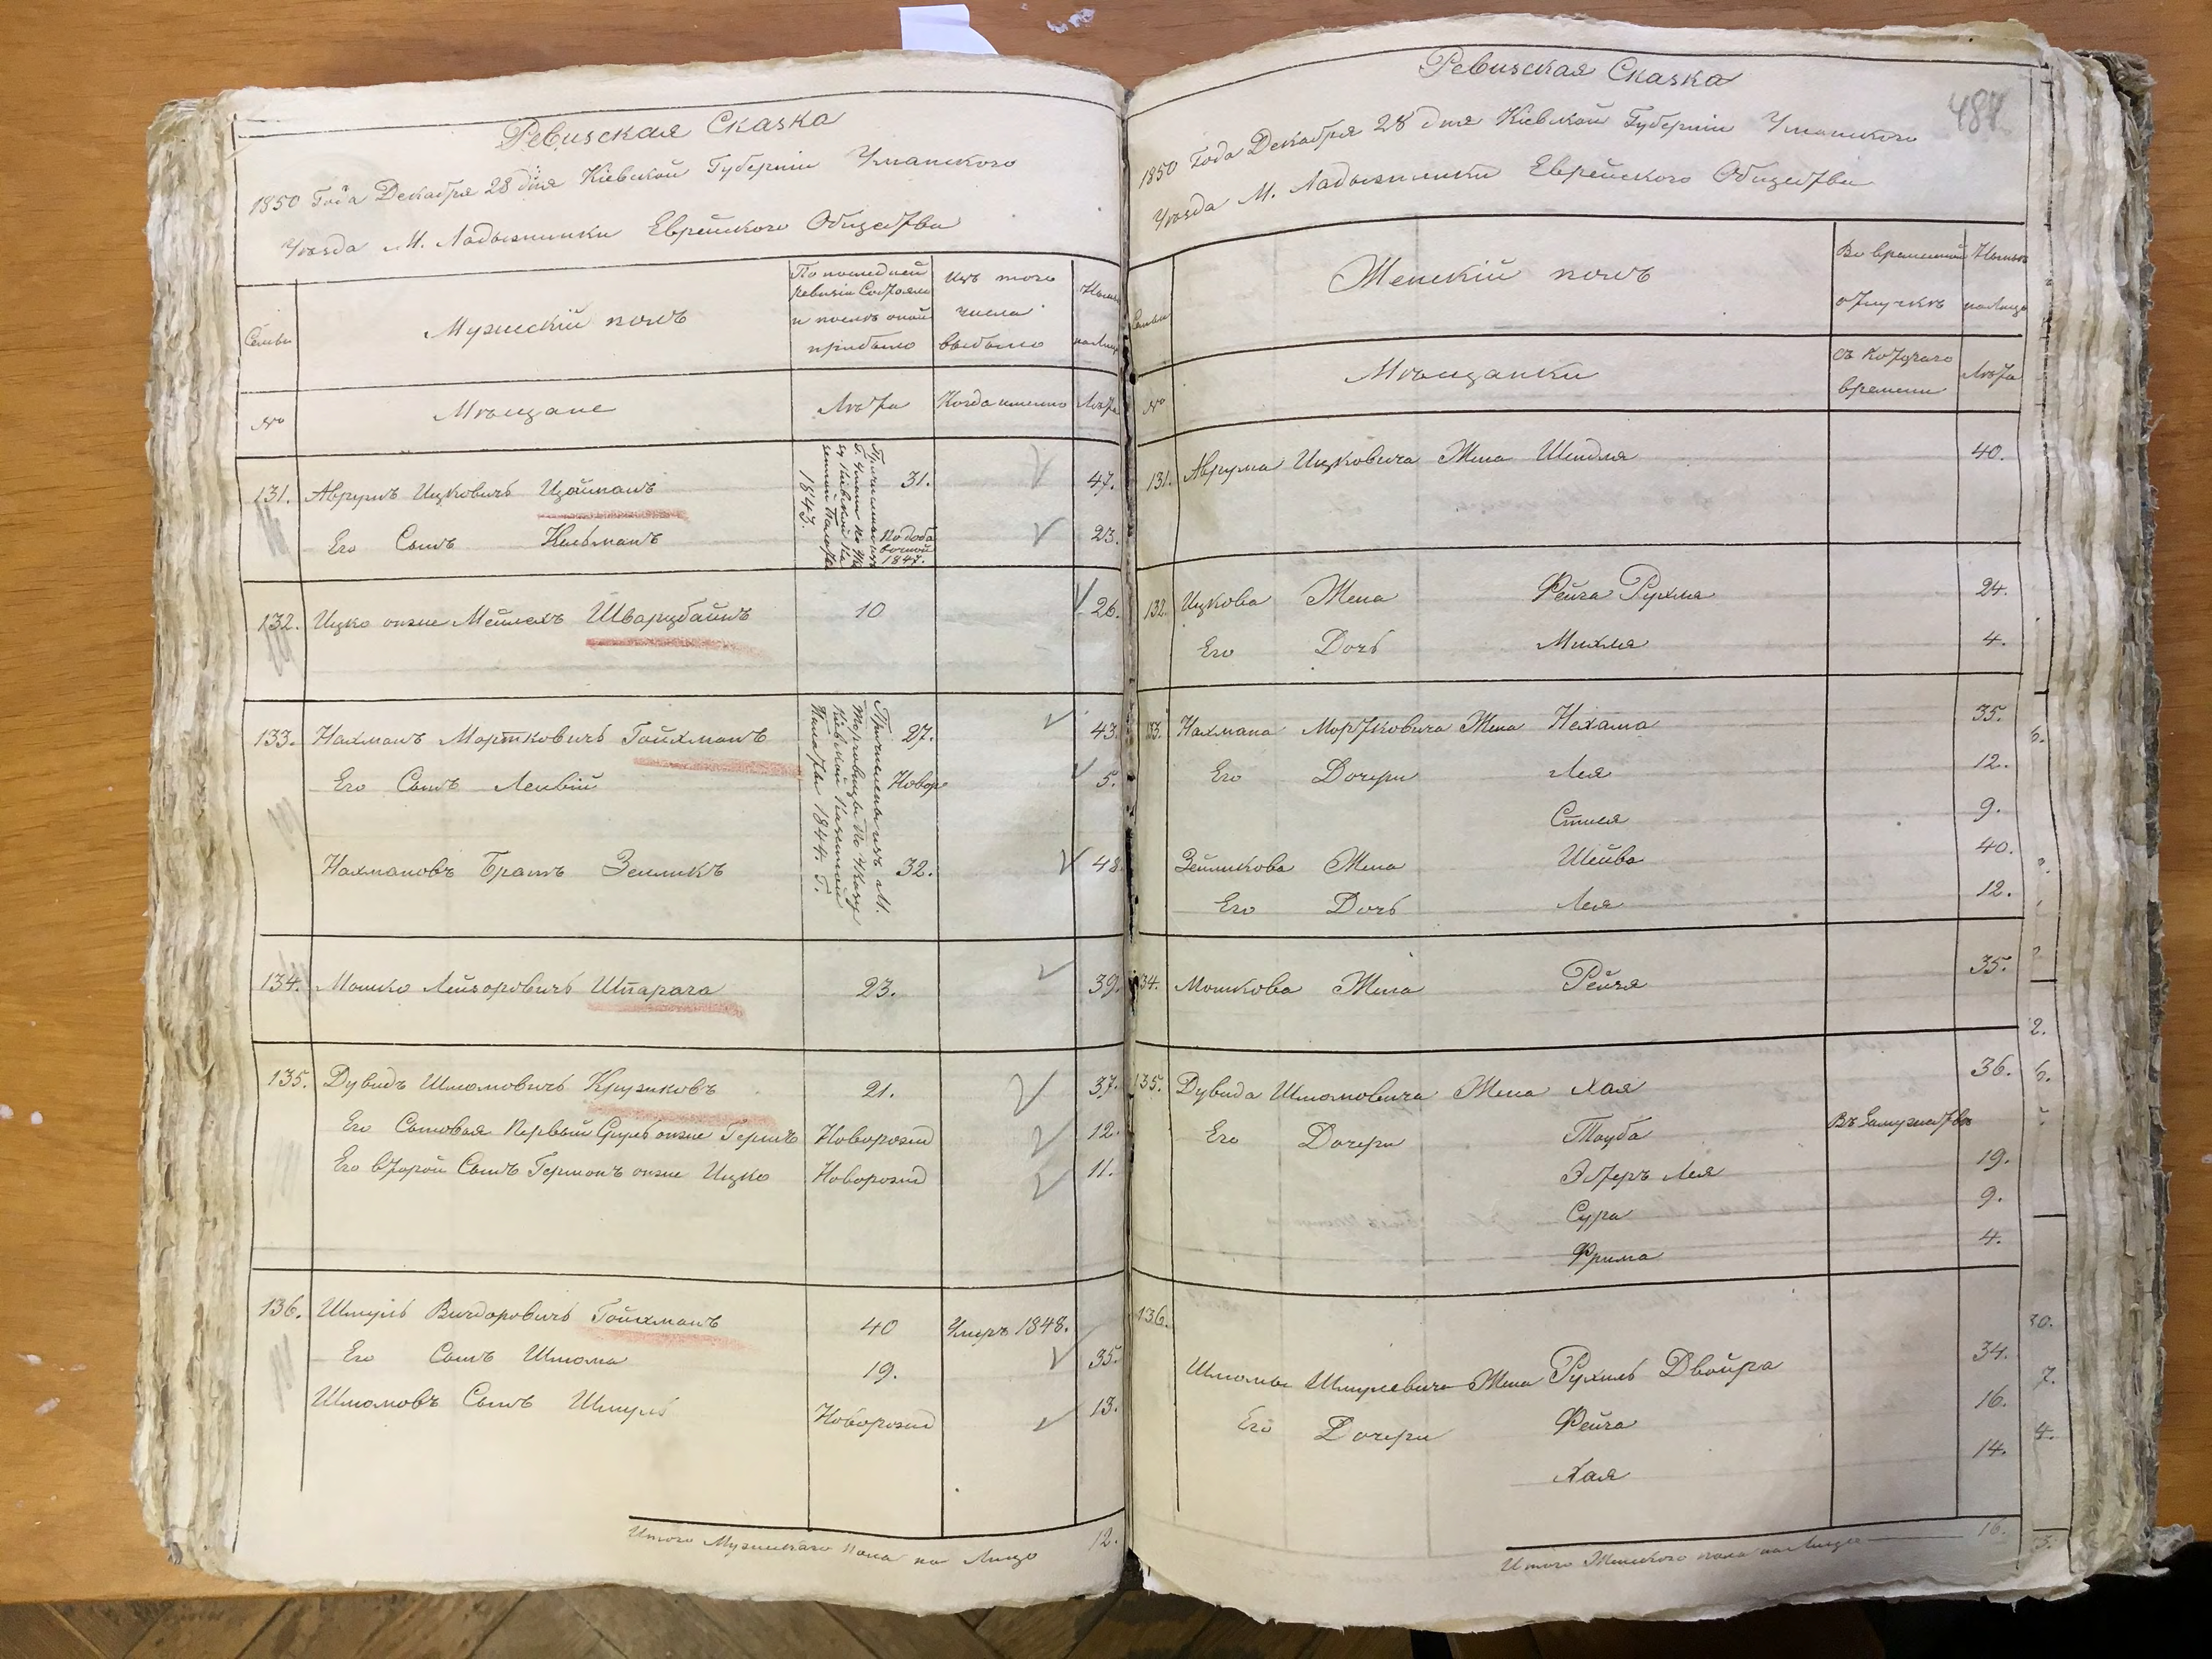 Ревизская Сказка
1850 Года Декабря 28 дня Кіевской Губерніи Уманского
Уѣзда М. Ладыжинки Еврейского Общества
Семьи
Мужескій полъ
По последней
ревизіи Состояло
и после оной
прибыло
Изъ того
числа
выбыло
Ныне
налицо
№
Мѣщане
Лѣта
Когда именно
Лѣта
131. Аврумъ Ицковичъ Цойманъ 31. 47.
Его Сынъ Нельманъ По доба
вочной
1847. 23.
Причисленъ изъ
Г. Умани по Ука
зу Кіевской Ка
зенной Палаты
1843.
132. Ицко онже Мейлехъ Шварцбайнъ 10 26.
133. Нахманъ Мортковичъ Гойхманъ 27. 43.
Его Сынъ Леивій Новор 5.
Нахмановъ Братъ Зеиликъ 32. 48
Причислены изъ М.
Торговицы по Указу
Кіевской Казенной
Палаты 1844. Г.
134. Мошко Лейзоровичъ Шпарага 23. 39.
135. Дувидъ Шломовичъ Кружковъ 21. 37.
Его Сыновья Первый Сруль онже Гершъ Новорожд 12.
Его Второй Сынъ Гершонъ онже Ицко Новорожд 11.
136. Шмуль Вигдоровичъ Гойхманъ 40 Умръ 1848.
Его Сынъ Шлома 19. 35.
Шломовъ Сынъ Шмуль Новорожд 13.
Итого Мужескаго пола на Лицо 12.
Ревизская Сказка
487
1850 Года Декабря 28 дня Кіевской Губерніи Уманского
Уѣзда М. Ладыжинки Еврейского Общества
Семьи
Женскій полъ
Во временной
отлучкѣ
Ныне
налицо
№
Мѣщанки
Съ котораго
времени
Лѣта
131. Аврума Ицковича Жена Шендля 40.
132. Ицкова Жена Фейга Рухля 24.
Его Дочь Михля 4.
133. Нахмана Мортковича Жена Нехама 35.
Его Дочери Лея 12.
Стися 9.
Зейликова Жена Шейва 40.
Его Дочь Лея 12.
134. Мошкова Жена Рейзя 35.
135. Дувида Шломовича Жена Хая 36.
Его Дочери Тауба Въ Замужествѣ
Эстеръ Лея 19.
Сура 9.
Фрима 4.
136.
Шломы Шмулевича Жена Рухиль Двойра 34.
Его Дочери Фейга 16.
Хая 14.
Итого Женского пола налицо 16.